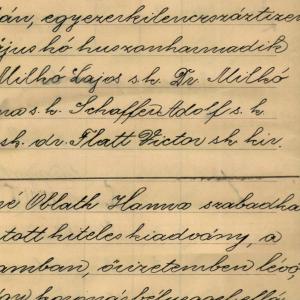 dán, egyezerkilencszáztizen
május hó huszonharmadik
Milkó Lajos s.k. Dr. Milkó
na s.k. Schaffer Adolf s.k.
sk. dr. Flatt Victor sk. kir.
né Oblath Hanna szabadka
tott hiteles kiadvány, a
amban, őrizetemben lévő,